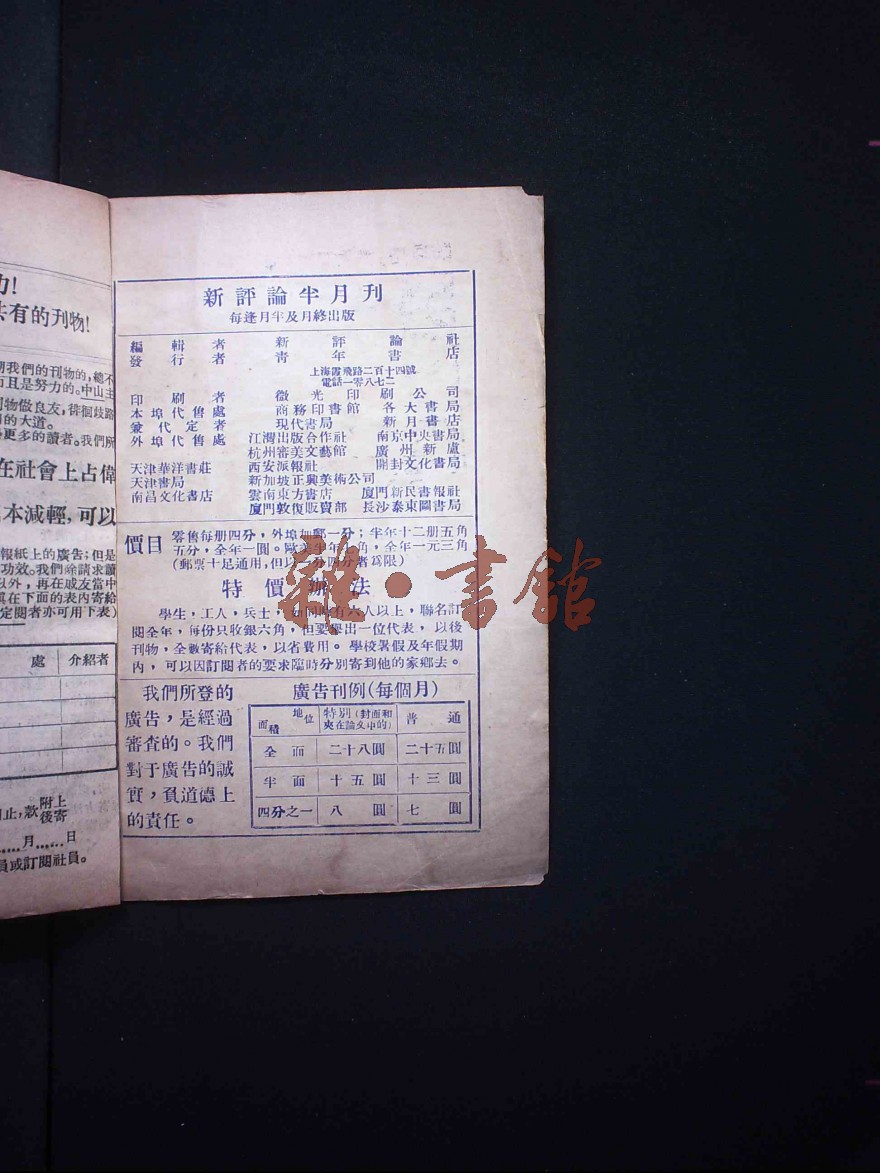 力!
共有的刊物!
期我們的刊物的,總不
而且是努力的。中山主
刊物做良友,徘徊歧路
的大道。
更多的讀者。我們所
在社會上占偉
本減輕,可以
報紙上的廣告;但是
功效。我們希請求讀
以外,再在戚友當中
填在下面的表內寄給
定閱者亦可用下表)
處 介紹者
止,款附上後寄
......月......日
員或訂閱社員。
新評論半月刊
每逢月半及月終出版
編輯者 新評論社
發行者 青年書店
上海霞飛路二百十四號
電話一零八七二
印刷者 微光印刷公司
本埠代售處 商務印書館 各大書局
兼代定者 現代書局 新月書店
外埠代售處 江灣出版合作社 南京中央書局
杭州審美文藝館 廣州新處
天津華洋書莊 西安派報社 開封文化書局
天津書局 新加坡正興美術公司
南昌文化書店 雲南東方書店 廈門新民書報社
廈門敦復販賣部 長沙泰東圖書局
價目 零售每册四分,外埠加郵一分;半年十二册五角
五分,全年一圓。歐美半年七角,全年一元三角
(郵票十足通用,但以一分四分者為限)
特價辦法
學生,工人,兵士,如同時有六人以上,聯名訂
閱全年,每份只收銀六角,但要舉出一位代表,以後
刊物,全數寄給代表,以省費用。學校暑假及年假期
內,可以因訂閱者的要求臨時分別寄到他的家鄉去。
雜·書館
我們所登的
廣告,是經過
審查的。我們
對于廣告的誠
實,負道德上
的責任。
廣告刊例(每個月)
地位 面積 特別(封面和夾在論文中的) 普通
全面 二十八圓 二十五圓
半面 十五圓 十三圓
四分之一 八圓 七圓